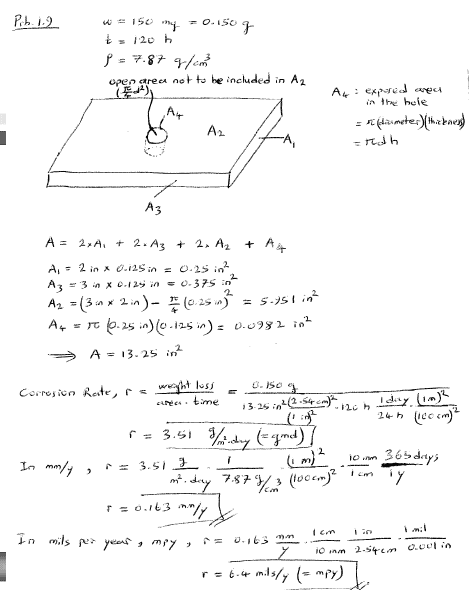 Prb. 1.9
w = 150 mg = 0.150 g
t = 120 h
ρ = 7.87 g/cm³
open area not to be included in A2
(π/4 d²)
A4 : exposed area in the hole
= π(diameter)(thickness)
= πdh
A4
A2
A1
A3
A = 2×A1 + 2×A3 + 2×A2 + A4
A1 = 2 in × 0.125 in = 0.25 in²
A3 = 3 in × 0.125 in = 0.375 in²
A2 = (3 in × 2 in) − π/4 (0.25 in)² = 5.951 in²
A4 = π (0.25 in)(0.125 in) = 0.0982 in²
⟹ A = 13.25 in²
Corrosion Rate, r = weight loss / area · time = 0.150 g / 13.25 in² (2.54 cm)²/(1 in)² · 120 h · 1 day/24 h · (1 m)²/(100 cm)²
r = 3.51 g/m²·day (= gmd)
In mm/y , r = 3.51 g/m²·day · 1/7.87 g/cm³ · (1 m)²/(100 cm)² · 10 mm/1 cm · 365 days/1 y
r = 0.163 mm/y
In mils per year, mpy, r = 0.163 mm/y · 1 cm/10 mm · 1 in/2.54 cm · 1 mil/0.001 in
r = 6.4 mils/y (= mpy)